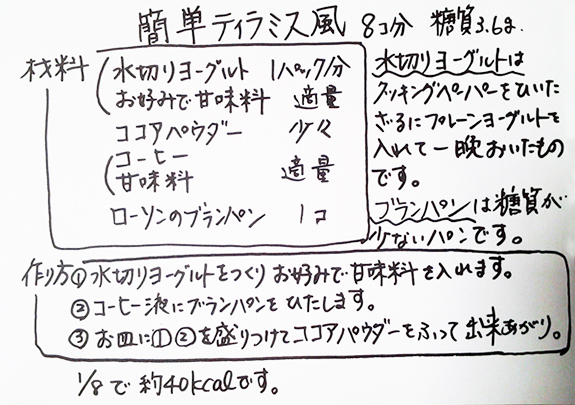 簡単ティラミス風 8コ分 糖質3.6g
材料
水切りヨーグルト 1パック分
お好みで甘味料 適量
ココアパウダー 少々
コーヒー
甘味料 適量
ローソンのブランパン 1コ
水切りヨーグルトは
クッキングペーパーをひいた
ざるにプレーンヨーグルトを
入れて一晩おいたもの
です。
ブランパンは糖質が
少ないパンです。
作り方①水切りヨーグルトをつくりお好みで甘味料を入れます。
②コーヒー液にブランパンをひたします。
③お皿に①②を盛りつけてココアパウダーをふって出来あがり。
1/8で約40kcalです。